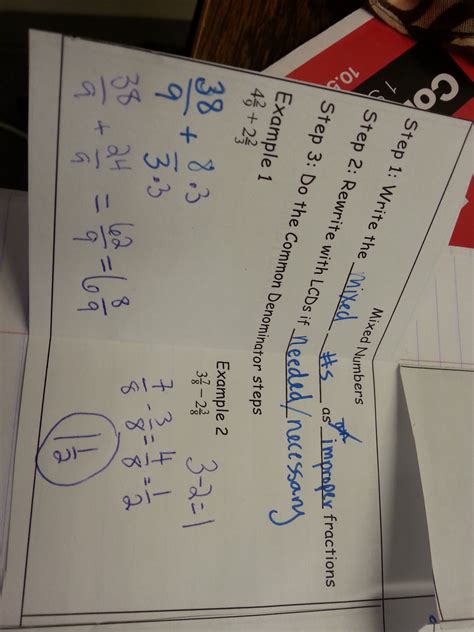 Mixed Numbers
Step 1: Write the mixed #s as improper fractions
Step 2: Rewrite with LCDs if needed/necessary
Step 3: Do the Common Denominator steps
Example 1
4 2/9 + 2 2/3
38/9 + 8·3/3·3
38/9 + 24/9 = 62/9 = 6 8/9
Example 2
3 7/8 - 2 3/8
3-2=1
7/8 - 3/8 = 4/8 = 1/2
1 1/2
Co
10.5